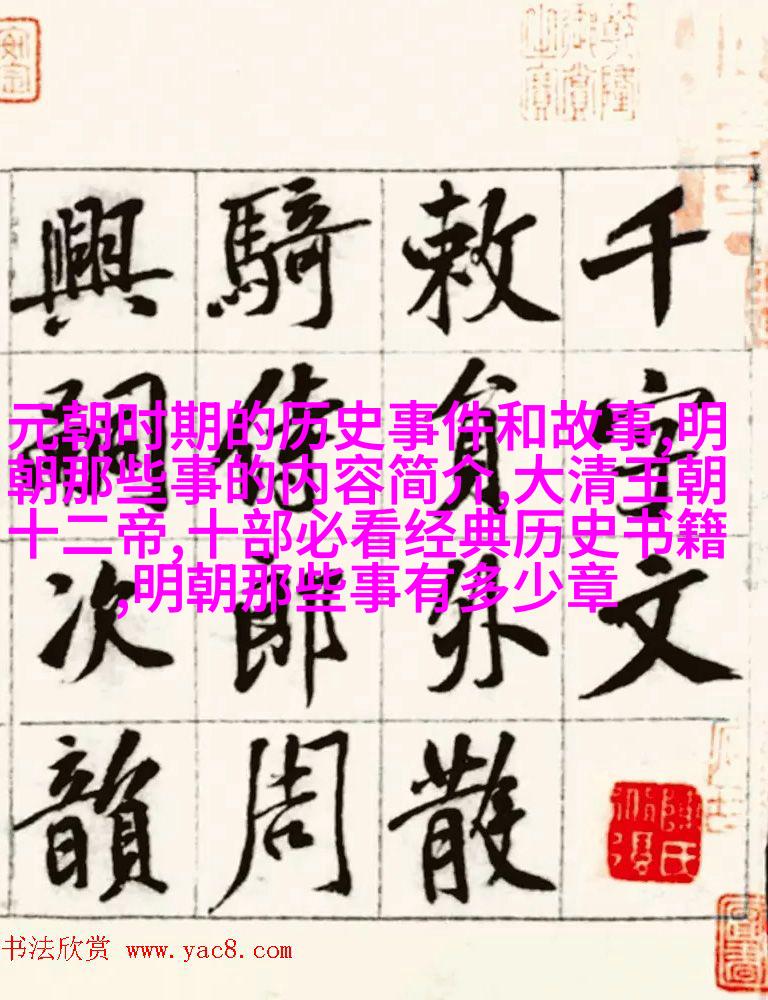 千字文
敕員外散
騎侍郎周
興嗣次韻
元朝时期的历史事件和故事,明
朝那些事的内容简介,大清王朝
十二帝,十部必看经典历史书籍
,明朝那些事有多少章
书法欣赏 www.yac8.com